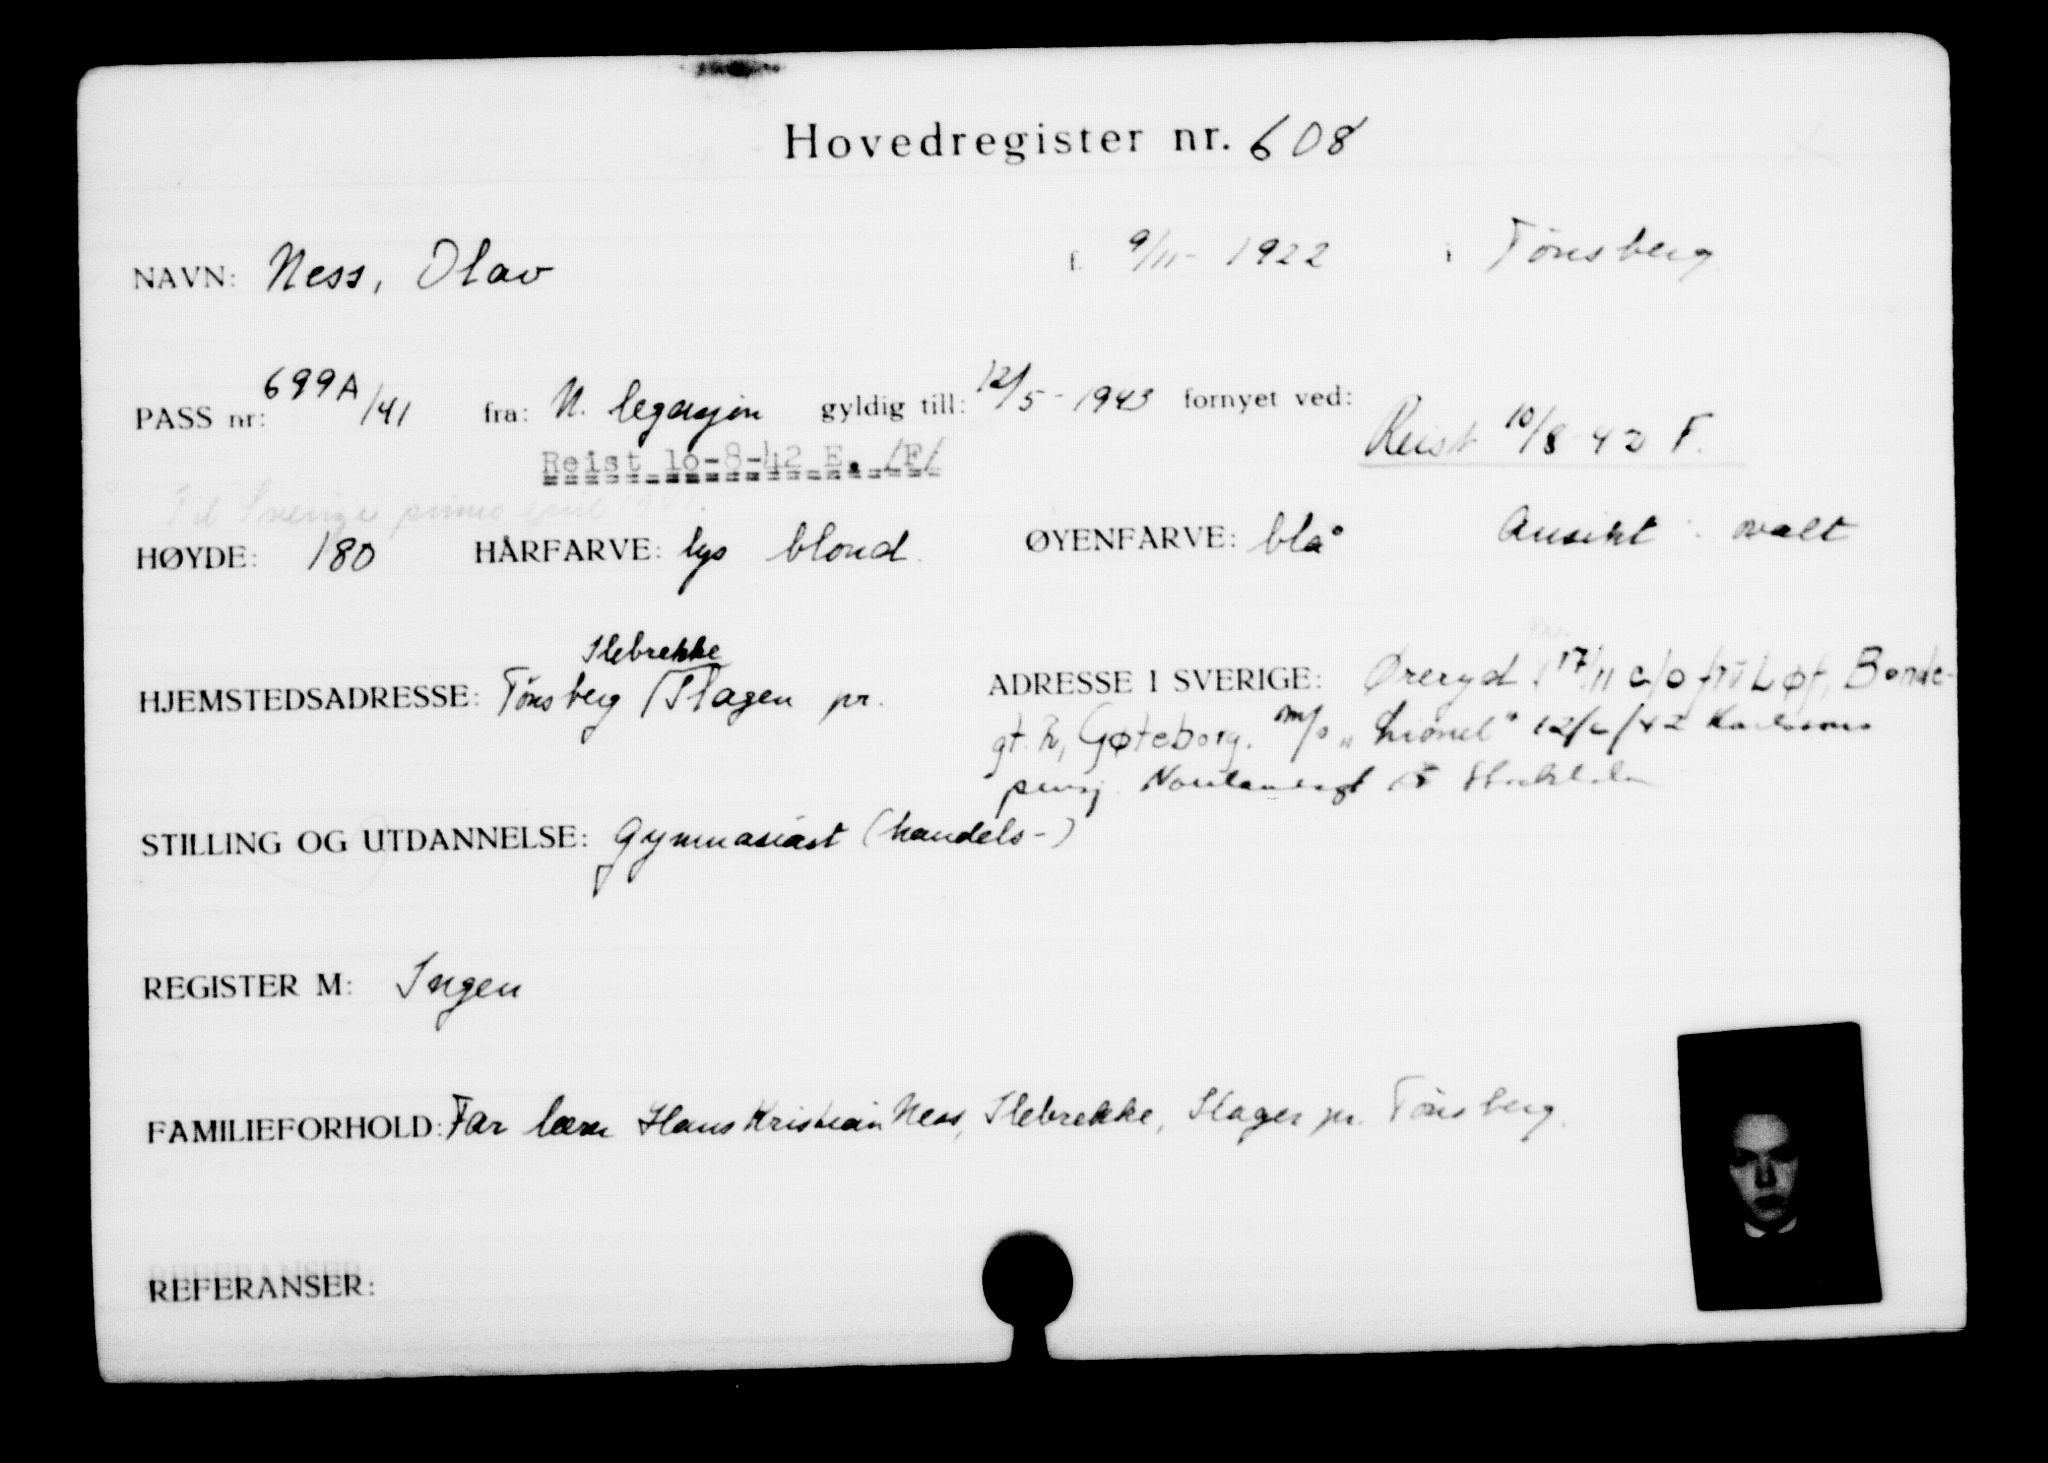 Hovedregister nr. 608
NAVN: Ness, Olav f. 9/11- 1922 i Tönsberg
PASS nr: 699A/41 fra: N. legasjon gyldig till: 12/5- 1943 fornyet ved:
Reist 10/8-42 F.
Reist 10-8-42 E. /F/
Til Sverige primo april 1941.
HØYDE: 180 HÅRFARVE: lys blond. ØYENFARVE: blå Ansikt: ovalt
Ilebrekke
HJEMSTEDSADRESSE: Tönsberg / Slagen pr. ADRESSE I SVERIGE: Øreryd 17/11 c/o frv Løf, Bonde-
gt. Gøteborg. m/s "Lionel" 12/6/42 Karlssons
pensj. Stockholm
STILLING OG UTDANNELSE: Gymnasiast (handels-)
REGISTER M: Ingen
FAMILIEFORHOLD: Far lærer Hans Kristian Ness, Ilebrekke, Slagen pr. Tönsberg.
REFERANSER: